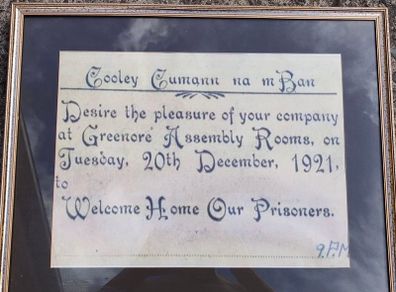 Cooley Cumann na mBan
Desire the pleasure of your company
at Greenore Assembly Rooms, on
Tuesday, 20th December, 1921,
to
Welcome Home Our Prisoners.
9.P.M